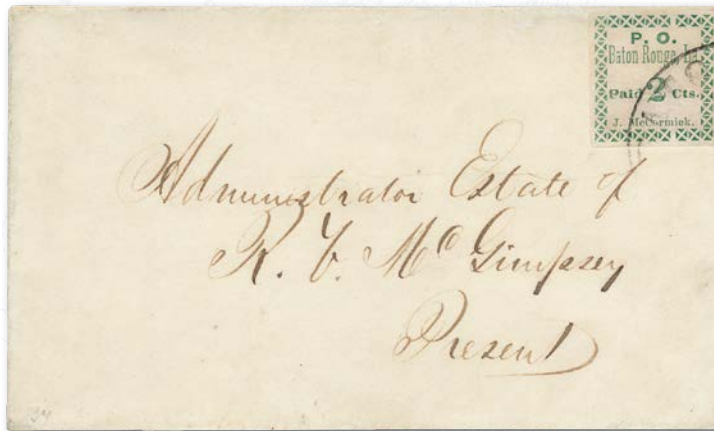 P. O.
Baton Rouge, La.
Paid 2 Cts.
J. McCormick.
Administrator Estate of
R. F. McGimpsey
Present
34